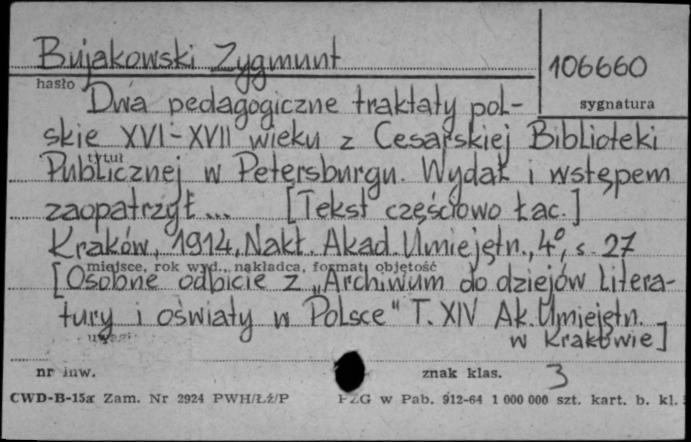 Bujakowski Zygmunt
106660
hasło
sygnatura
Dwa pedagogiczne traktaty pol-
skie XVI-XVII wieku z Cesarskiej Biblioteki
tytuł
Publicznej w Petersburgu. Wydał i wstępem
zaopatrzył... [Tekst częściowo łac.]
Kraków, 1914, Nakł. Akad. Umiejętn., 4°, s. 27
miejsce, rok wyd., nakładca, format, objętość
[Osobne odbicie z „Archiwum do dziejów litera-
tury i oświaty w Polsce" T. XIV Ak. Umiejętn.
uwagi
w Krakowie]
nr inw.
znak klas. 3
CWD-B-15a Zam. Nr 2924 PWH/Łź/P
PZG w Pab. 912-64 1 000 000 szt. kart. b. kl.